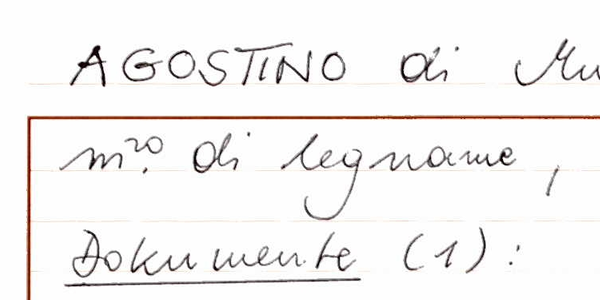 AGOSTINO di
m.ro di legname,
Dokumente (1):